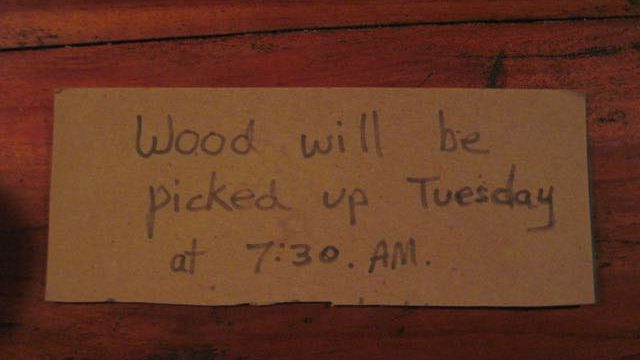 Wood will be
picked up Tuesday
at 7:30. AM.